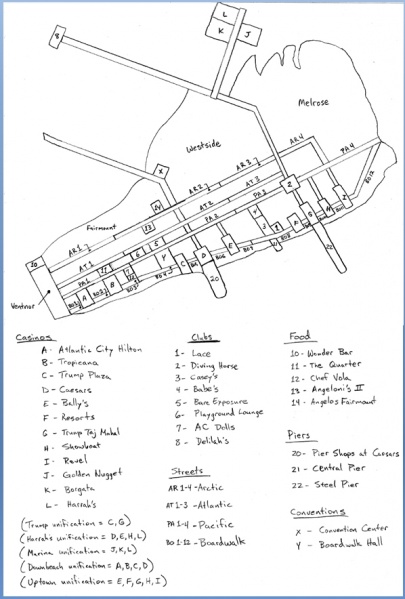 L
K J
8
Melrose
Westside
X
AR 4
PA 4
AR 3
AT 3
2
PA 3
BO12
AR 2
AT 2
PA 2
14
Fairmount
13
I
H
G
F
E
D
C
Y
B
A
10
AR 1
AT 1
PA 1
11
6
5
Ventnor
BO1
BO2
BO3
BO4
BO6
20
21
22
Casinos
A - Atlantic City Hilton
B - Tropicana
C - Trump Plaza
D - Caesars
E - Bally's
F - Resorts
G - Trump Taj Mahal
H - Showboat
I - Revel
J - Golden Nugget
K - Borgata
L - Harrah's
(Trump unification = C, G)
(Harrah's unification = D, E, H, L)
(Marina unification = J, K, L)
(Downbeach unification = A, B, C, D)
(Uptown unification = E, F, G, H, I)
Clubs
1 - Lace
2 - Diving Horse
3 - Casey's
4 - Babe's
5 - Bare Exposure
6 - Playground Lounge
7 - AC Dolls
8 - Delilah's
Streets
AR 1-4 - Arctic
AT 1-3 - Atlantic
PA 1-4 - Pacific
BO 1-12 - Boardwalk
Food
10 - Wonder Bar
11 - The Quarter
12 - Chef Vola
13 - Angeloni's II
14 - Angelos Fairmount
Piers
20 - Pier Shops at Caesars
21 - Central Pier
22 - Steel Pier
Conventions
X - Convention Center
Y - Boardwalk Hall